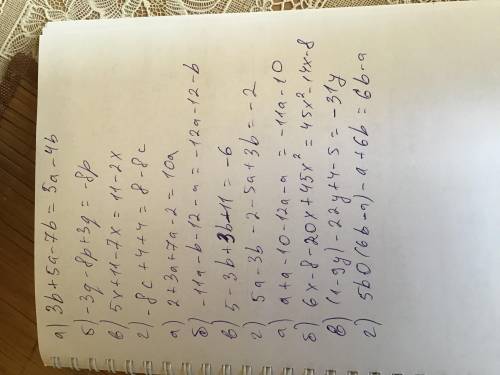 а) 3b+5a-7b = 5a-4b
б) -3q-8p+3q = -8p
в) 5x+11-7x = 11-2x
г) -8c+4+4 = 8-8c
а) 2+3a+7a-2 = 10a
б) -11a-b-12-a = -12a-12-b
в) 5-3b+3b-11 = -6
г) 5a-3b-2-5a+3b = -2
а) a+a-10-12a-a = -11a-10
б) 6x-8-20x+45x² = 45x²-14x-8
в) (1-9y)-22y+4-5 = -31y
г) 5b0(6b-a)-a+6b = 6b-a